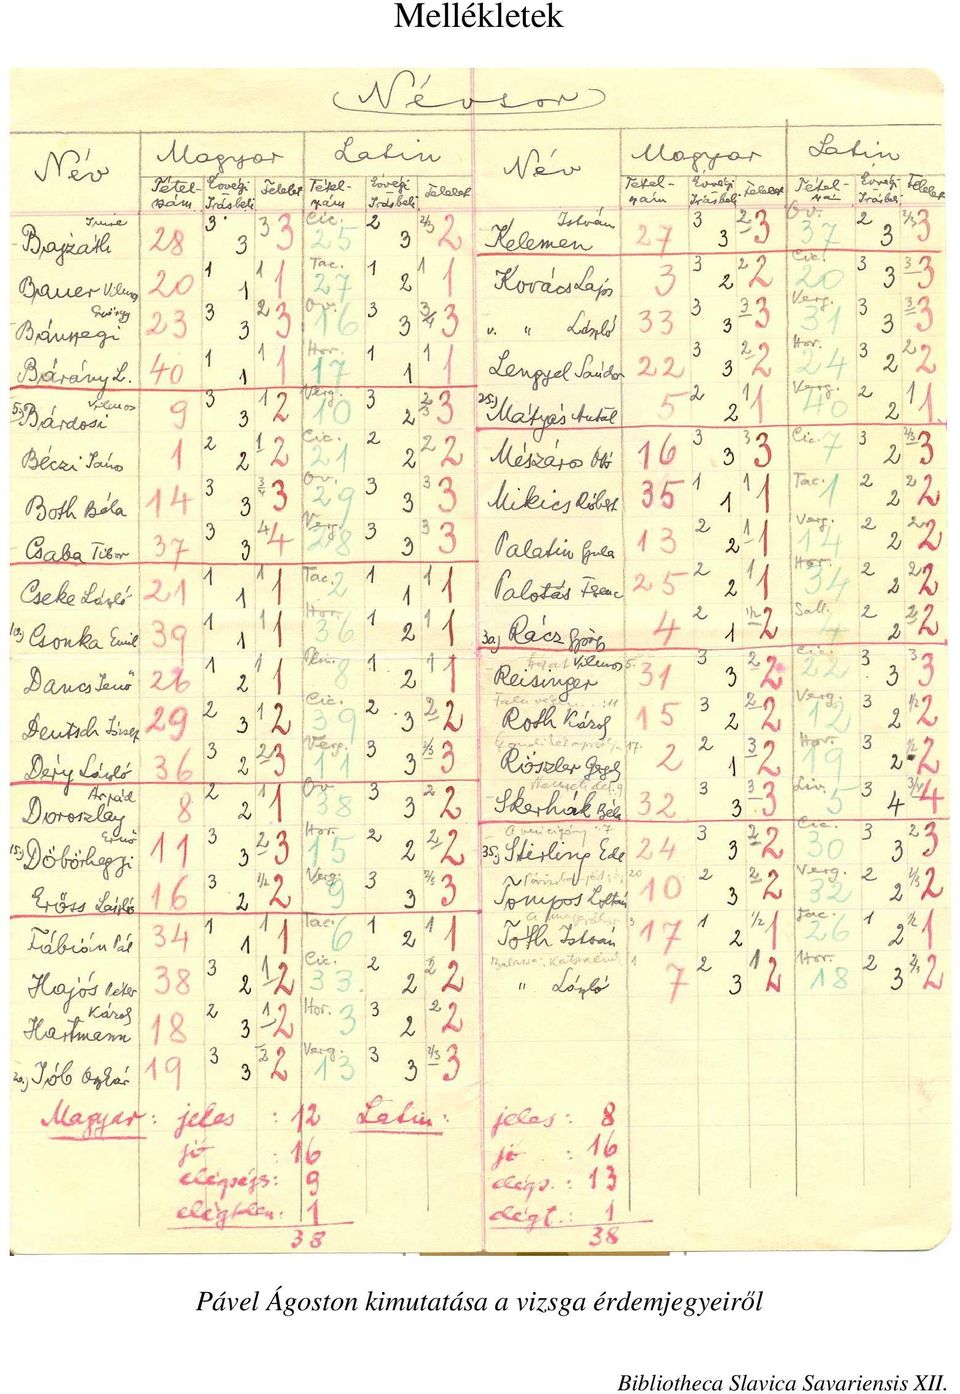 Mellékletek
Névsor
Név Magyar Latin Név Magyar Latin
Tétel-szám Évvégi Írásbeli Felelet Tétel-szám Évvégi Írásbeli Felelet Tétel-szám Évvégi Írásbeli Felelet Évvégi Írásbeli Felelet
Bajzáth 28 3 3 3 3 Cic. 25 2 3 2/3 2 Kelemen István 27 3 3 2 3 Ov. 37 2 3 2/3 3
Bauer Vilmos 20 1 1 1 1 Tac. 27 1 2 1 1 Kovács Lajos 3 3 2 2 2 Cic. 20 3 3 3 3
Bánhegyi 23 3 3 2 3 Ov. 16 3 3 3/4 3 v. " László 33 3 3 3 3 Verg. 31 3 3 3 3
Bárány L. 40 1 1 1 1 Hor. 17 1 1 1 1 Lengyel Sándor 22 3 3 2 2 Hor. 24 3 2 2 2
5.) Bárdosi Vilmos 9 3 3 1 2 Verg. 10 3 2 2/3 3 25.) Mátyás Antal 5 2 2 1 1 Verg. 40 2 2 1 1
Béczi János 1 2 2 1 2 Cic. 21 2 2 2 2 Mészáros Ottó 16 3 3 3 3 Cic. 7 3 2 2/3 3
Both Béla 14 3 3 3/4 3 Ov. 29 3 3 3 3 Mikics Róbert 35 1 1 1 1 Tac. 1 2 2 2 2
Csaba Tibor 37 3 3 4 4 Verg. 28 3 3 3 3 Palatin Gyula 13 2 2 1 1 Verg. 14 2 2 2 2
Cseke László 21 1 1 1 1 Tac. 2 1 1 1 1 Palotás Ferenc 25 2 2 1 1 Hor. 34 2 2 2 2
10.) Csonka Emil 39 1 1 1 1 Hor. 36 1 2 1 1 30.) Rácz György 4 2 1 1/2 2 Sall. 4 2 2 2 2
Dancs Jenő 26 1 2 1 1 8 1 2 1 1 Reisinger Vilmos 31 3 3 2 2 Cic. 22 3 3 3 3
Deutsch József 29 2 3 1 2 Cic. 39 2 3 2 2 Roth Károly 15 3 2 2 2 Verg. 12 3 2 1/2 2
Déry László 36 3 2 2/3 3 Verg. 11 3 3 2/3 3 2 2 1 3 2 Hor. 19 3 2 1/2 2
Doroszlay Árpád 8 2 2 1 1 Ov. 38 3 3 2 2 Skerhák Béla 32 3 3 3 3 Liv. 5 3 4 3/4 4
15.) Döbörhegyi Ernő 11 3 3 2 3 Hor. 15 2 2 2 2 35.) Stirling Ede 24 3 3 2 2 Cic. 30 3 3 2 3
Erőss László 16 3 2 1/2 2 Verg. 9 3 3 2/3 3 Tompos Zoltán 10 2 3 2 2 Verg. 32 2 2 1/3 2
Fábián Pál 34 1 1 1 1 Tac. 6 1 2 1 1 Tóth István 17 1 2 1/2 1 Tac. 26 1 2 1/2 1
Hajós Péter 38 3 2 1 2 Cic. 33 2 2 2 2 " László 7 2 3 1 2 Hor. 18 2 3 2/3 2
Hartmann Károly 18 2 3 1 2 Hor. 3 3 2 2 2
20.) Jób Oszkár 19 3 3 2 2 Verg. 13 3 3 2/3 3
Magyar: jeles : 12 Latin: jeles : 8
jó : 16 jó : 16
elégséges : 9 elégs. : 13
elégtelen : 1 elégt. : 1
38 38
Pável Ágoston kimutatása a vizsga érdemjegyeiről
Bibliotheca Slavica Savariensis XII.